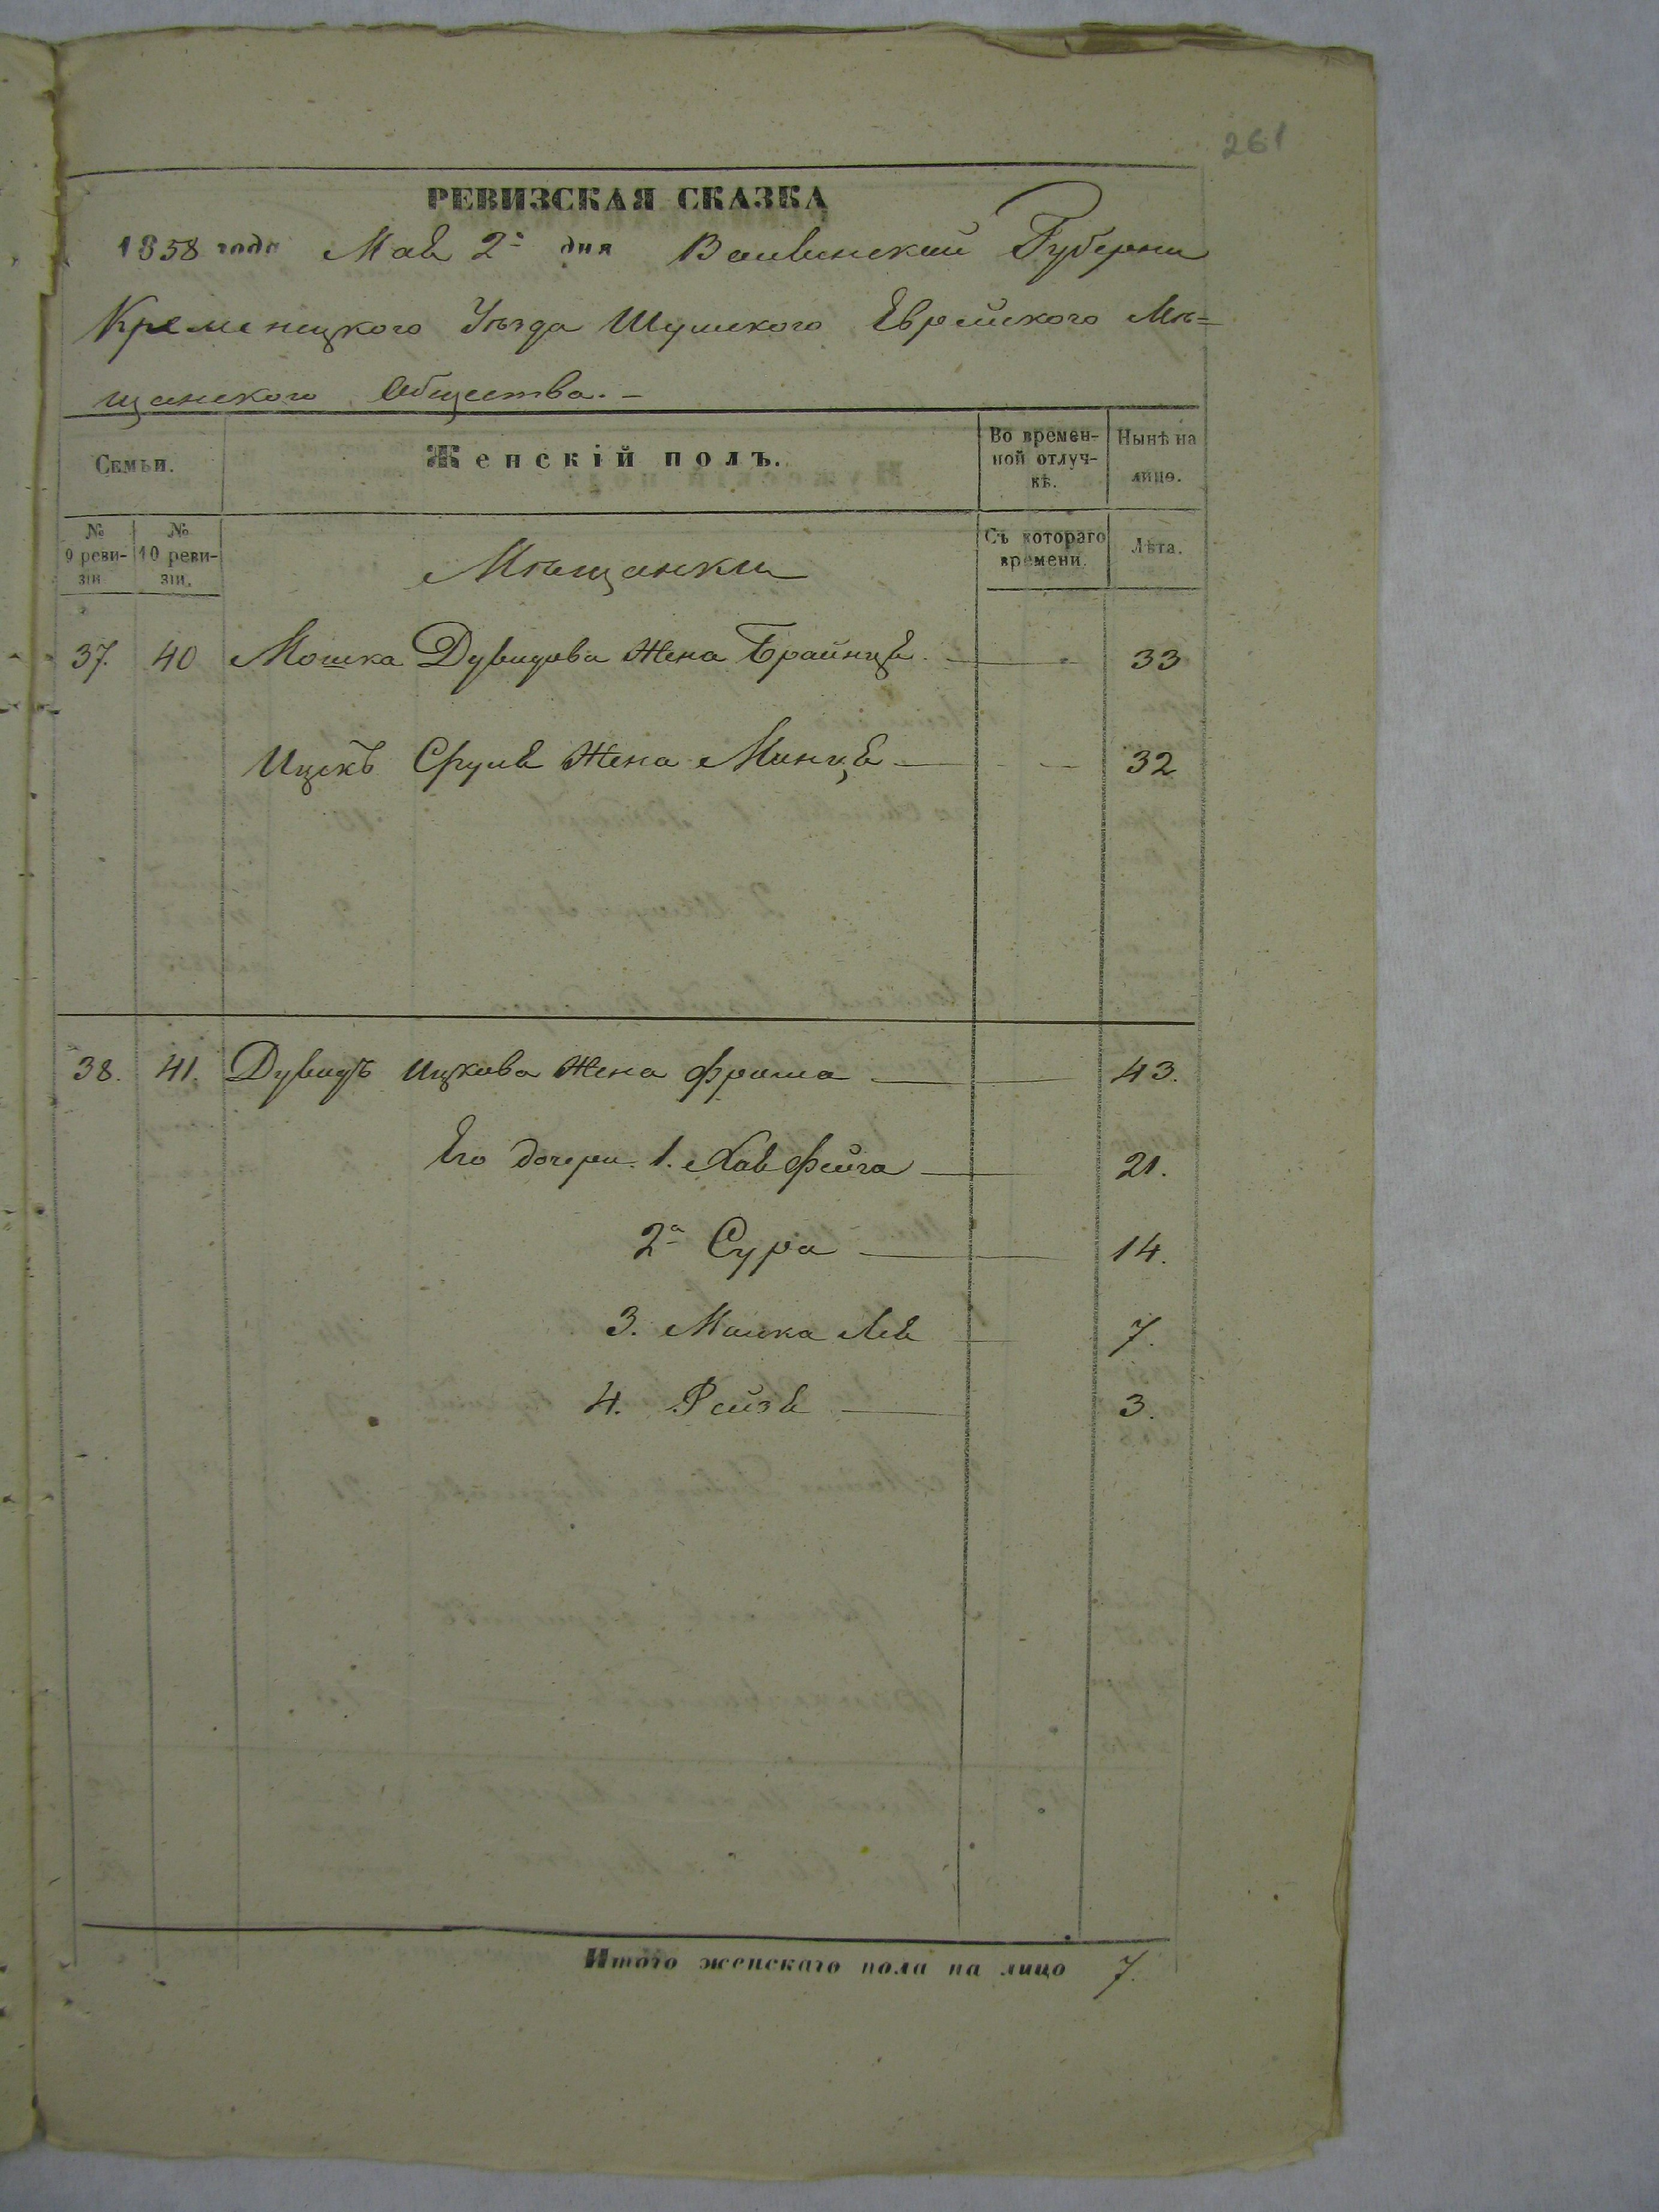 261
РЕВИЗСКАЯ СКАЗКА
1858 года Мая 2го дня Волынской Губерни
Кременецкого Уѣзда Шумского Еврейского Мѣ=
щанского Общества. –
Семьи.
Женскій полъ.
Во времен-
ной отлуч-
кѣ.
Нынѣ на
лицо.
№
9 реви-
зіи
№
10 реви-
зіи.
Мѣщанки
Съ котораго
времени.
Лѣта.
37. 40 Мошка Дувидова Жена Брайнця 33
Ицекъ Сруля Жена Минця 32
38. 41. Дувидъ Ицкова Жена Фрима 43.
Его дочери. 1. Хая Фейга 21.
2а Сура 14.
3. Малка Лея 7.
4. Рейзя 3.
Итого женскаго пола на лицо 7.